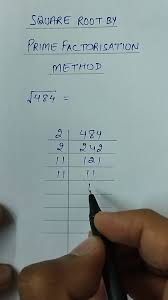 SQUARE ROOT BY
PRIME FACTORISATION
METHOD
√484 =
2 | 484
2 | 242
11 | 121
11 | 11
| 1